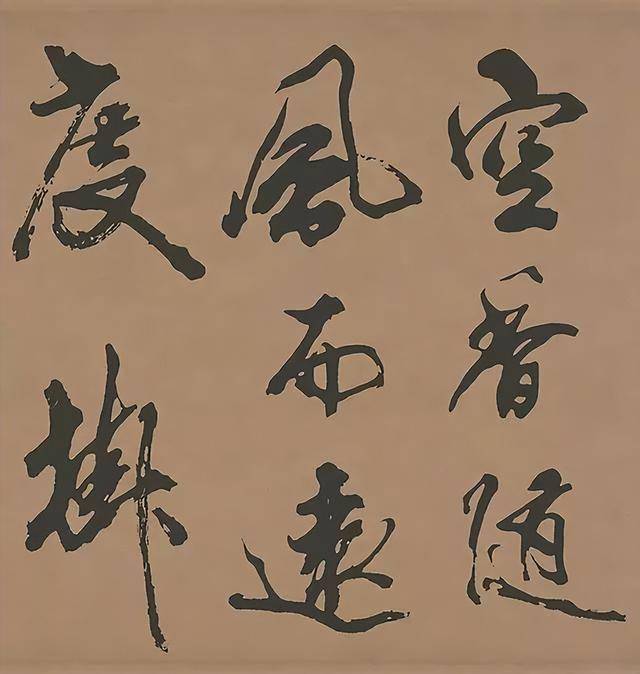 空香随
風而遠
度掛